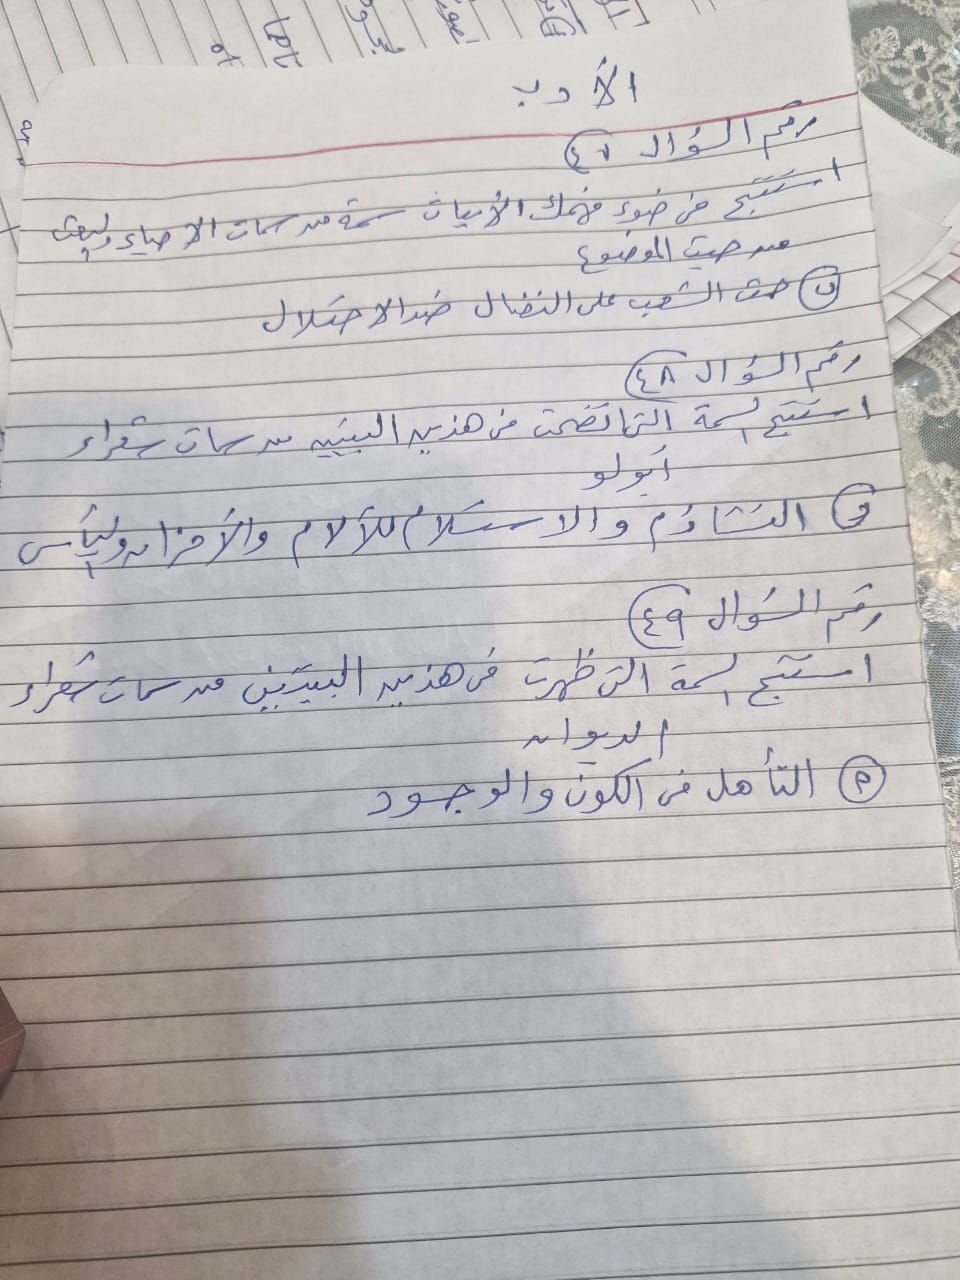 الأدب
رقم السؤال ٤٧
استنتج فى ضوء فهمك الأبيات سمة من سمات الاحياء والبعث
من حيث الموضوع
ب حث الشعب على النضال ضد الاحتلال
رقم السؤال ٤٨
استنتج السمة التى اتضحت فى هذين البيتين من سمات شعراء
أبولو
التشاؤم والاستسلام للآلام والأحزان واليأس
رقم السؤال ٤٩
استنتج السمة التى ظهرت فى هذين البيتين من سمات شعراء
الديوان
التأمل فى الكون والوجود